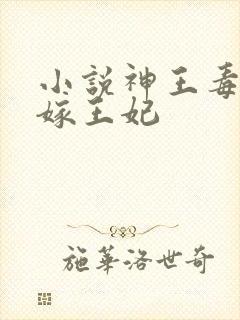 小説神王毒
嫁王妃
施華洛世奇